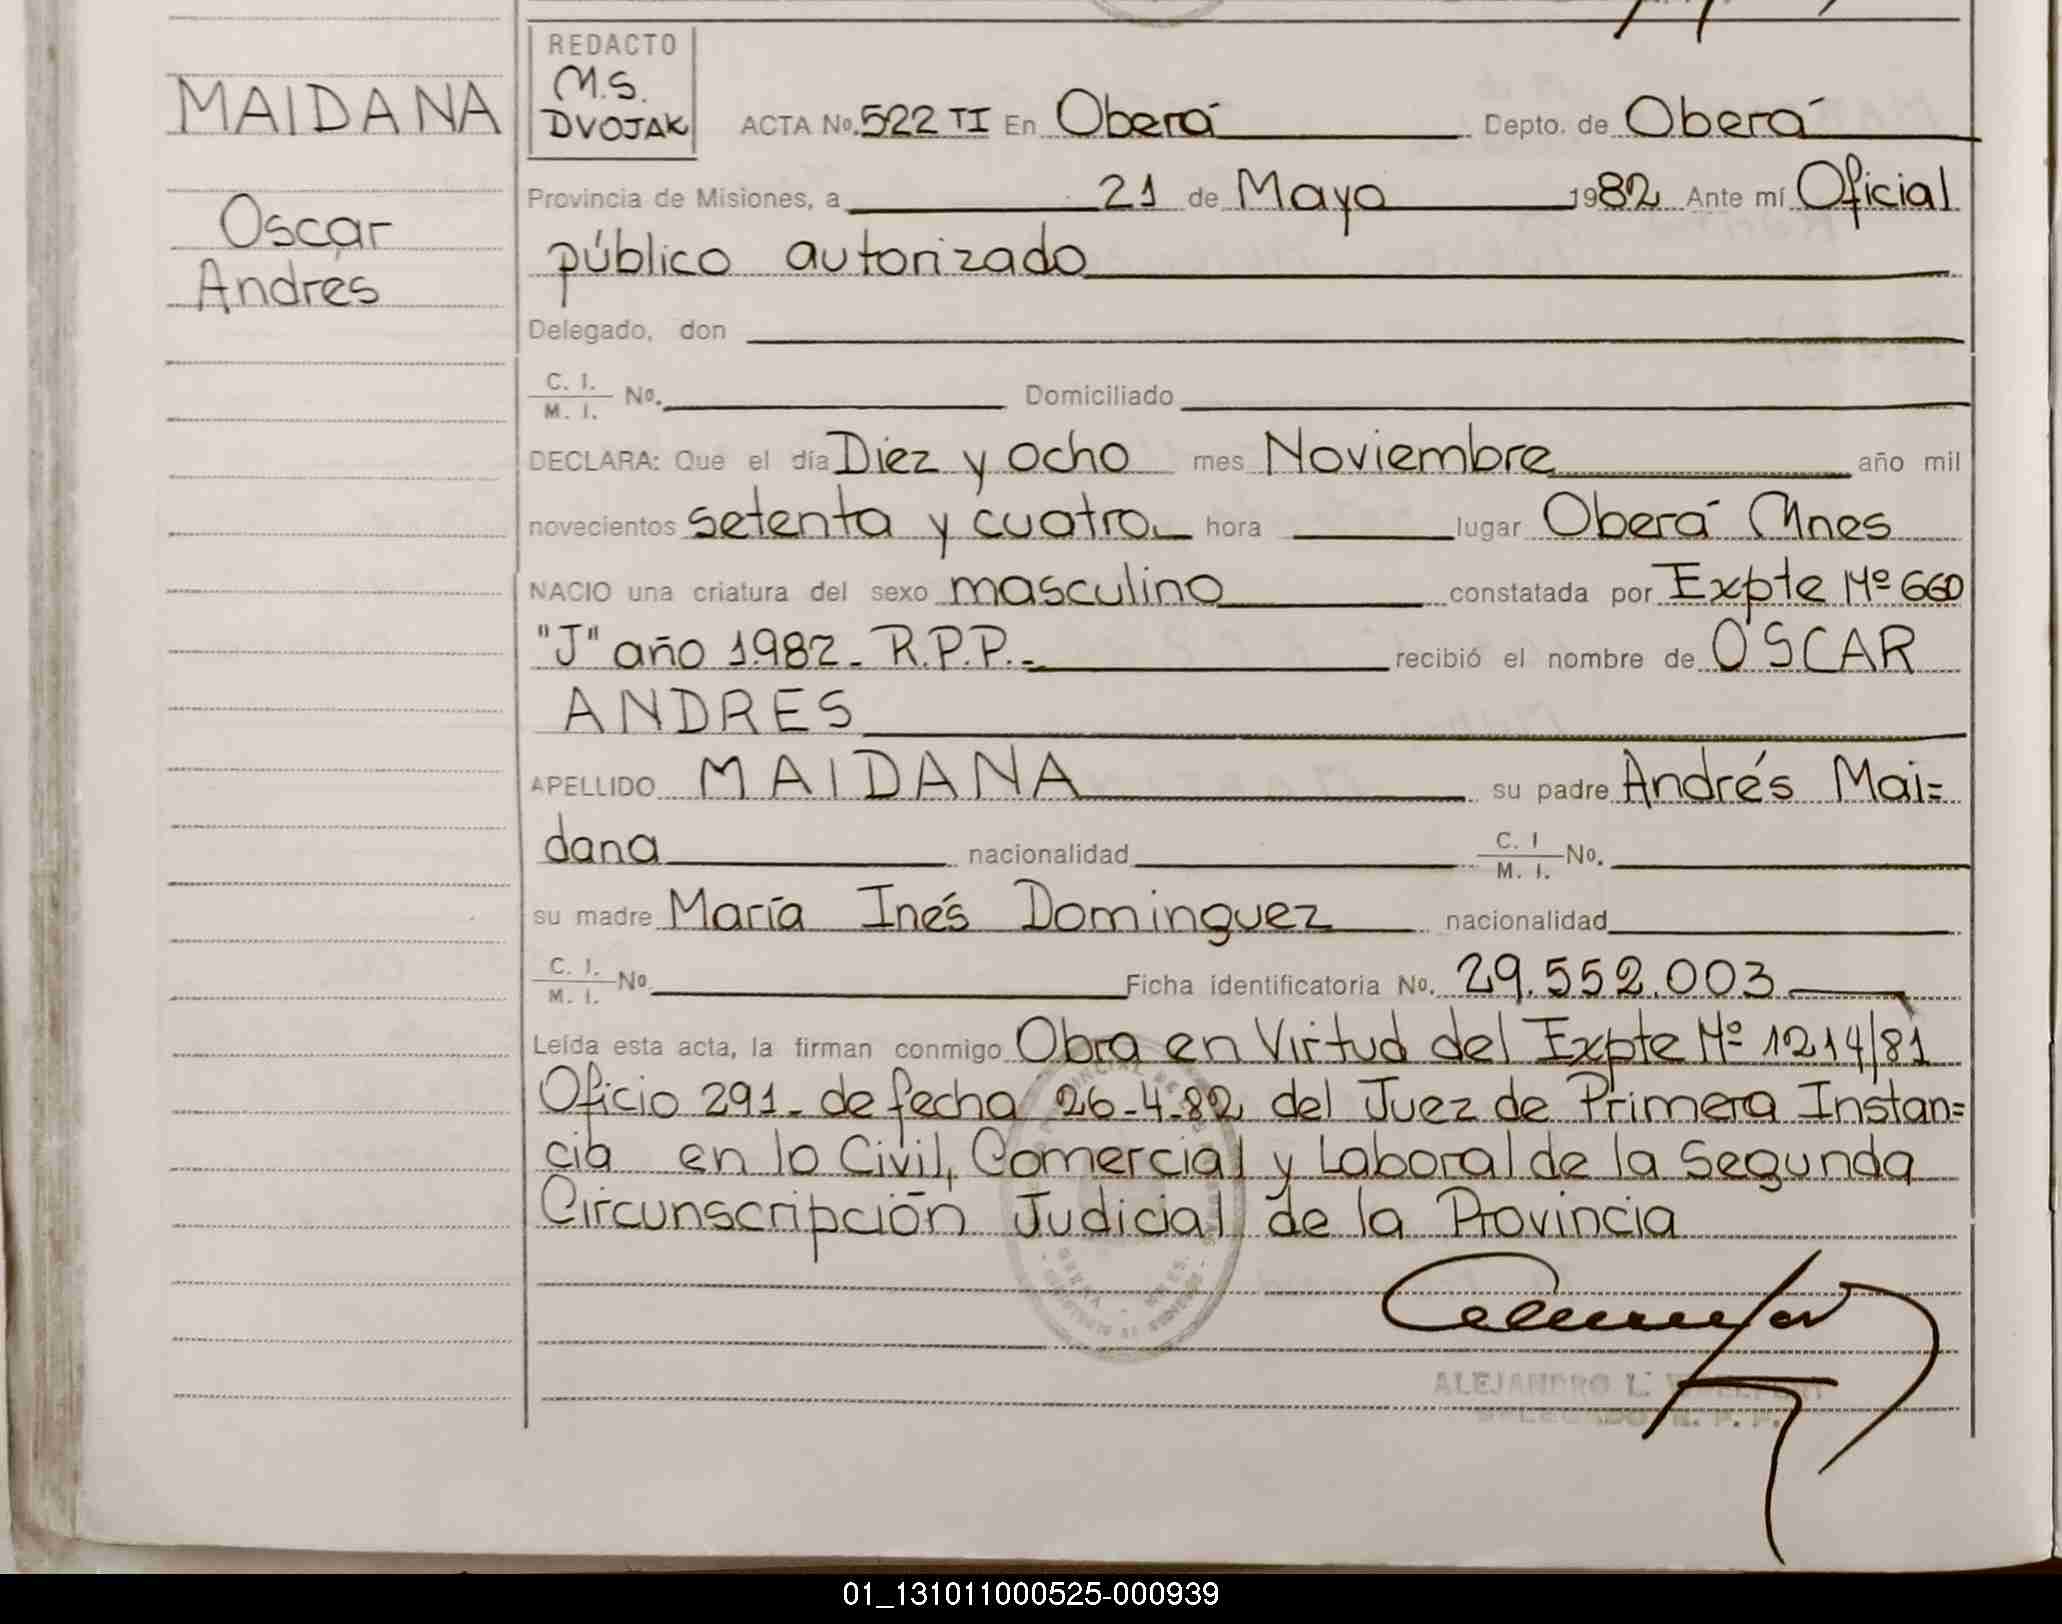 MAIDANA
Oscar
Andrés
REDACTO
M.S.
DVOJAK
ACTA No. 522 TI En Oberá Depto. de Oberá
Provincia de Misiones, a 21 de Mayo 1982 Ante mí Oficial
público autorizado
Delegado, don
C. I. / M. I. No. Domiciliado
DECLARA: Que el día Diez y ocho mes Noviembre año mil
novecientos setenta y cuatro hora lugar Oberá Mnes
NACIO una criatura del sexo masculino constatada por Expte Nº 660
"J" año 1982 - R.P.P. - recibió el nombre de OSCAR
ANDRES
APELLIDO MAIDANA su padre Andrés Mai=
dana nacionalidad C. I / M. I. No.
su madre María Inés Dominguez nacionalidad
C. I. / M. I. No Ficha identificatoria No. 29.552.003
Leída esta acta, la firman conmigo Obra en Virtud del Expte Nº 1214/81
Oficio 291 - de fecha 26-4-82 del Juez de Primera Instan=
cia en lo Civil, Comercial y Laboral de la Segunda
Circunscripción Judicial de la Provincia
ALEJANDRO L.
DELEGADO R. P. P.
01_131011000525-000939